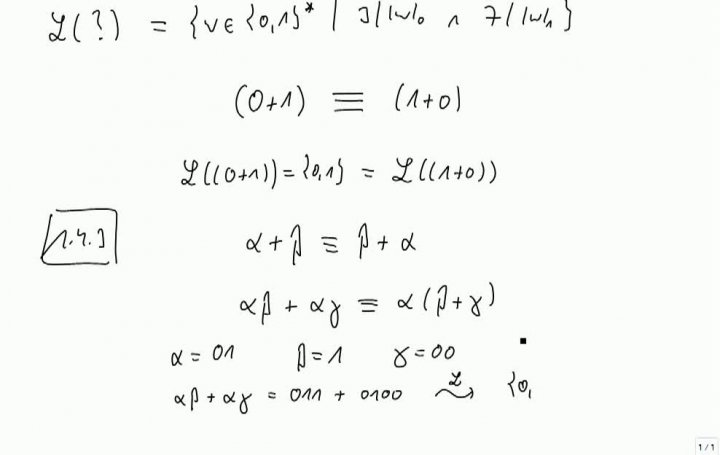 ℒ(?) = {v ∈ {0,1}* | 3 | |w|₀ ∧ 7 | |w|₁}
(0+1) ≡ (1+0)
ℒ((0+1)) = {0,1} = ℒ((1+0))
1.4.3 α + β ≡ β + α
αβ + αγ ≡ α(β+γ)
α = 01 β = 1 γ = 00
αβ + αγ = 011 + 0100 ⤳ ℒ {0,
1/1